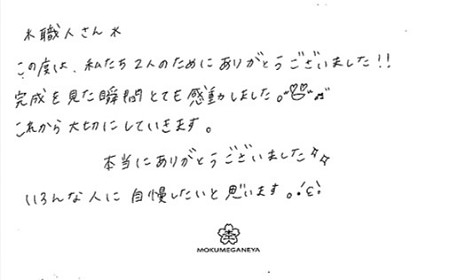 *職人さん*
この度は、私たち2人のためにありがとうございました!!
完成を見た瞬間とても感動しました。
これから大切にしていきます。
本当にありがとうございました
いろんな人に自慢したいと思います。
MOKUMEGANEYA